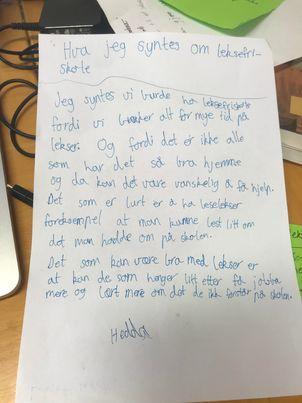 Hva jeg syntes om leksefri-
skole
Jeg syntes vi burde ha leksefriskole
fordi vi bruker alt for mye tid på
lekser. Og fordi det er ikke alle
som har det så bra hjemme
og da kan det være vanskelig å få hjelp.
Det som er lurt er å ha leselekser
foreksempel at man kunne lest litt om
det man hadde om på skolen.
Det som kan være bra med lekser er
at kan de som henger litt etter få jobba
mere og lært mere om det de ikke forstår på skolen.
Hedda